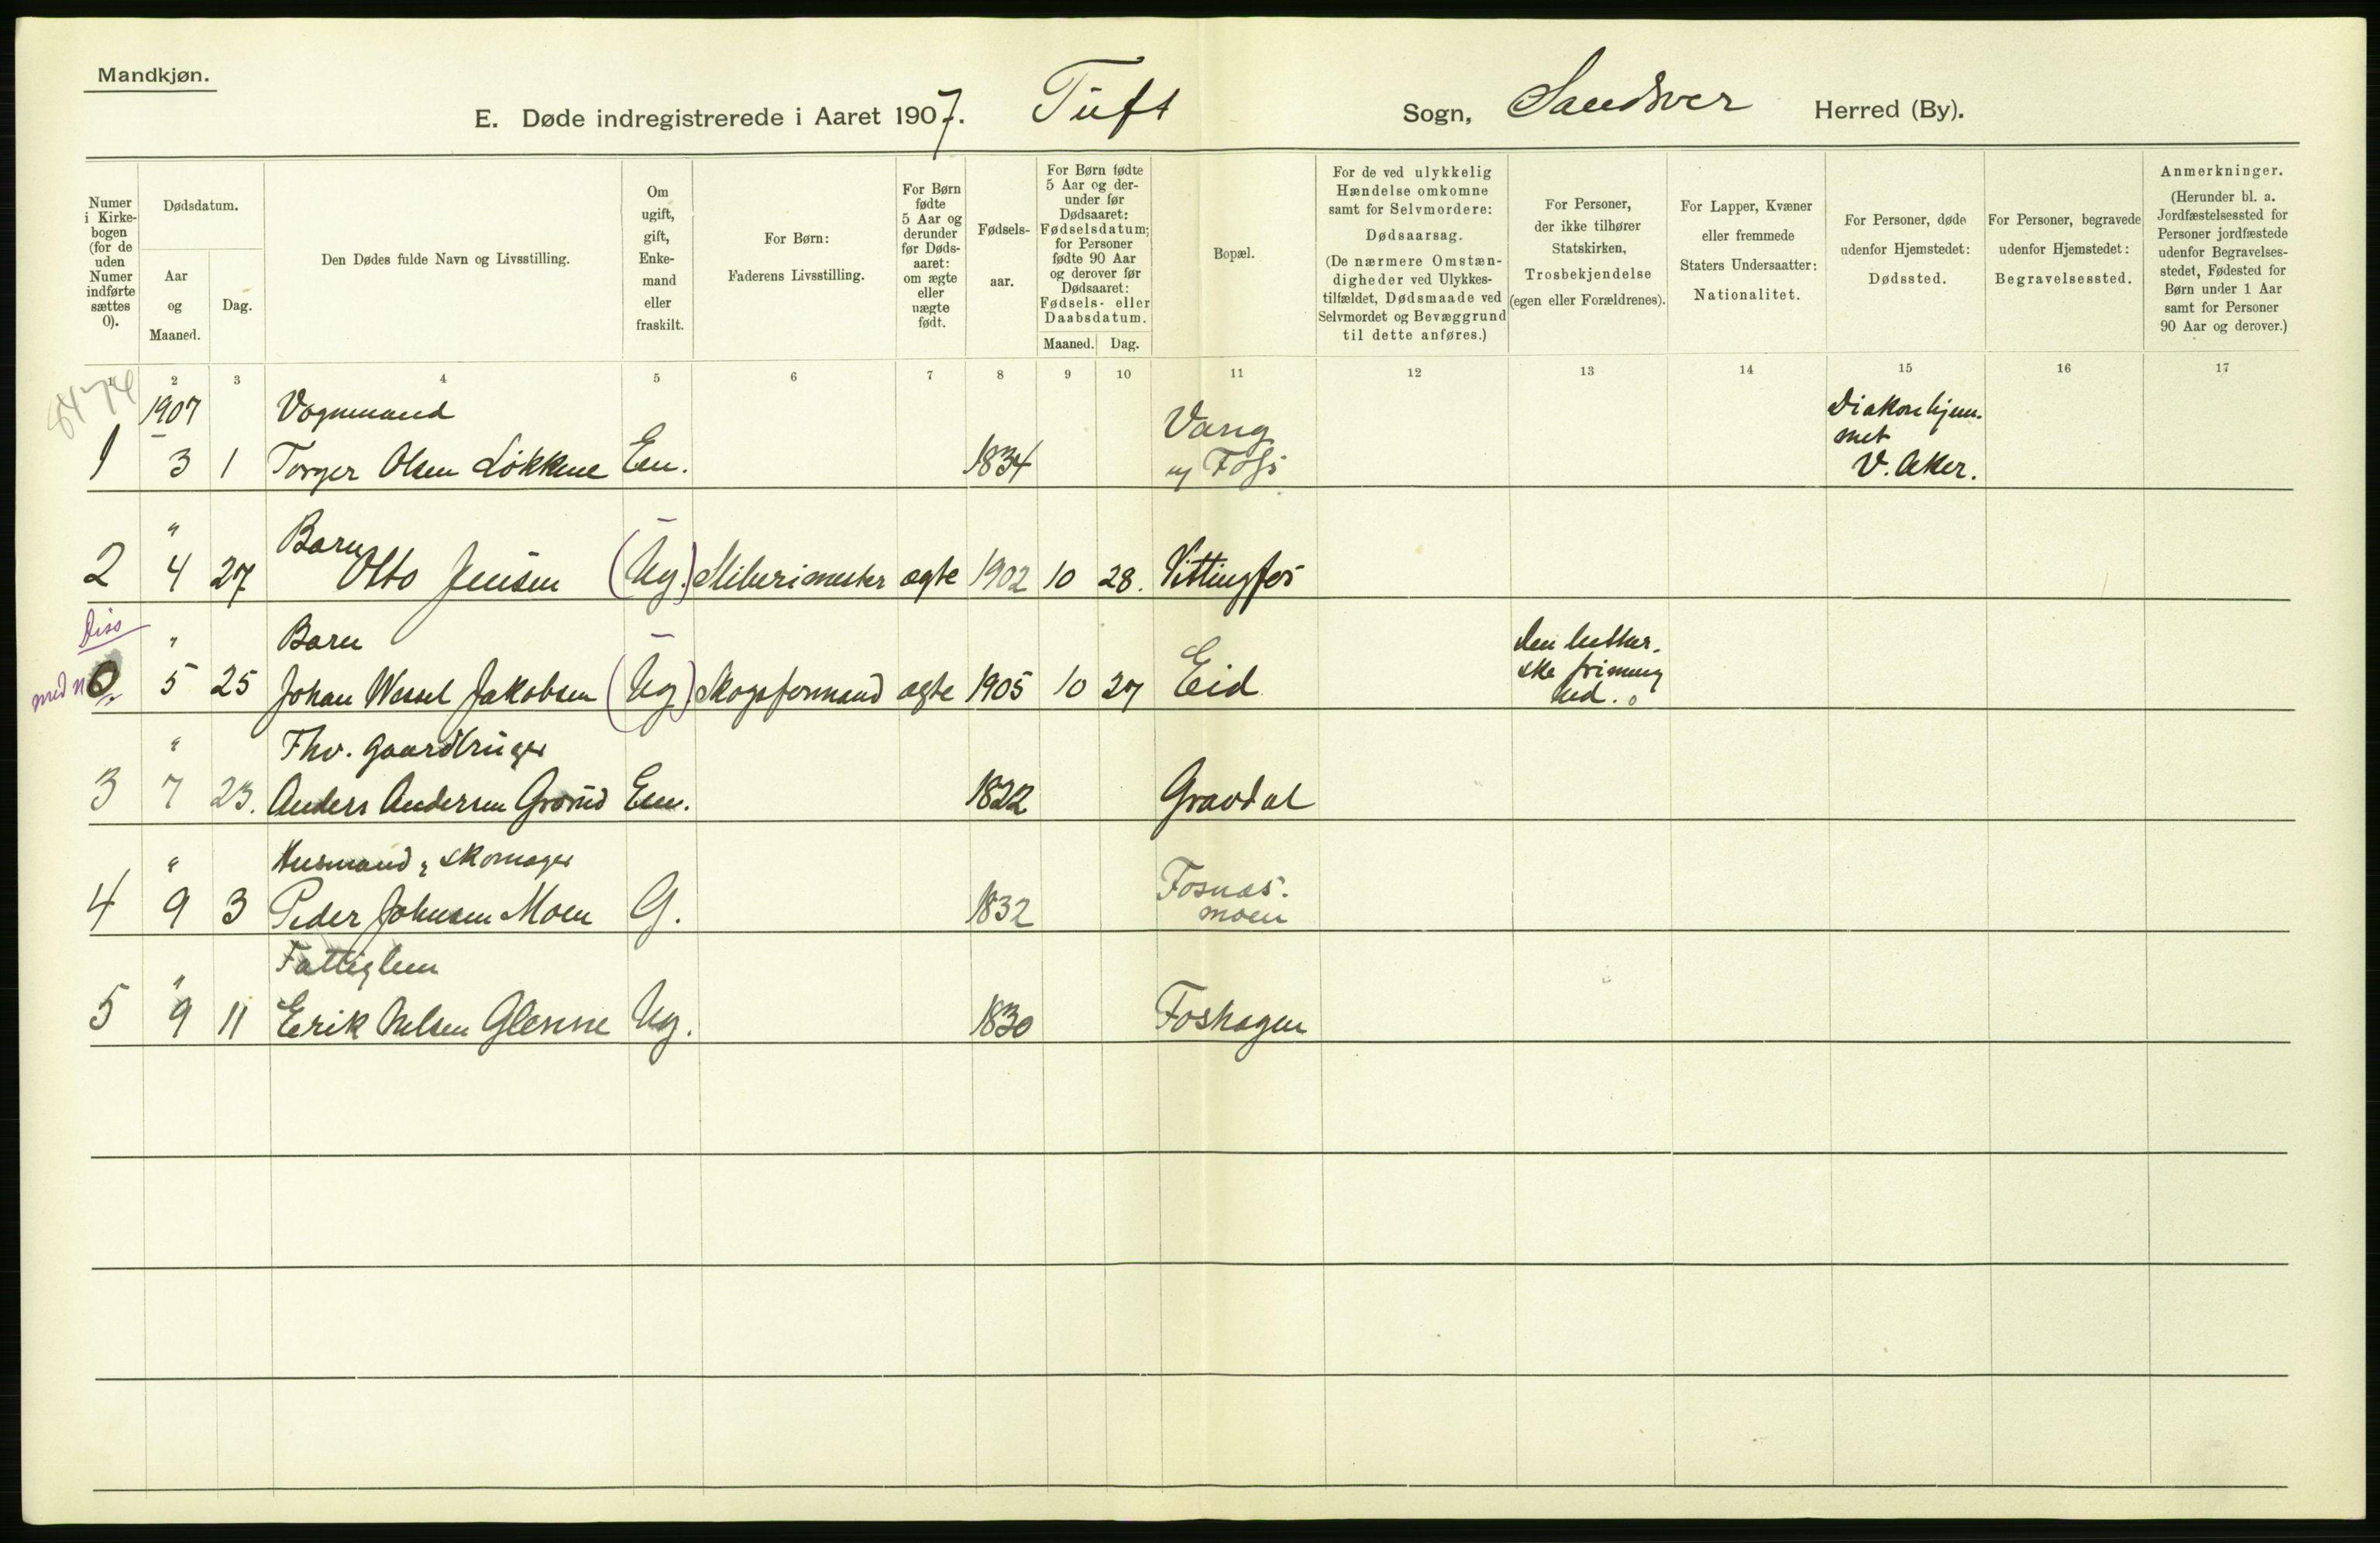 Mandkjøn.
E. Døde indregistrerede i Aaret 1907. Tuft Sogn, Sandsver Herred (By).
Numer i Kirke-bogen (for de uden Numer indførte sættes 0).
Dødsdatum.
Aar og Maaned.
Dag.
Den Dødes fulde Navn og Livsstilling.
Om ugift, gift, Enke-mand eller fraskilt.
For Børn:
Faderens Livsstilling.
For Børn fødte 5 Aar og derunder før Døds-aaret: om ægte eller uægte født.
Fødsels-aar.
For Børn fødte 5 Aar og der-under før Dødsaaret: Fødselsdatum; for Personer fødte 90 Aar og derover før Dødsaaret: Fødsels- eller Daabsdatum.
Maaned. Dag.
Bopæl.
For de ved ulykkelig Hændelse omkomne samt for Selvmordere: Dødsaarsag. (De nærmere Omstæn-digheder ved Ulykkes-tilfældet, Dødsmaade ved Selvmordet og Bevæggrund til dette anføres.)
For Personer, der ikke tilhører Statskirken, Trosbekjendelse (egen eller Forældrenes).
For Lapper, Kvæner eller fremmede Staters Undersaatter: Nationalitet.
For Personer, døde udenfor Hjemstedet: Dødssted.
For Personer, begravede udenfor Hjemstedet: Begravelsessted.
Anmerkninger. (Herunder bl. a. Jordfæstelsessted for Personer jordfæstede udenfor Begravelses-stedet, Fødested for Børn under 1 Aar samt for Personer 90 Aar og derover.)
1 2 3 4 5 6 7 8 9 10 11 12 13 14 15 16 17
1907 Vognmand Vang Diakonhjem-
met
1 3 1 Torger Olsen Løkkene Em. 1834 V. Aker.
" Barn
2 4 27 Otto Jensen (Ug.) Sliberimester ægte 1902 10 28. Vittingfos
Diss " Barn Den luther-
ske frimenig
0 5 25 Johan Wessel Jakobsen (Ug.) Skogsformand ægte 1905 10 27 Eid
hed.
" Fhv. Gaardbruger
3 7 23. Anders Andersen Grorud Em. 1822 Gravdal
" Husmand, skomager Fosnæs-
4 9 3 Peder Johnsen Moen G. 1832 moen
" Fattiglem
5 9 11 Erik Nelsen Glenne Ug. 1830 Foshagen